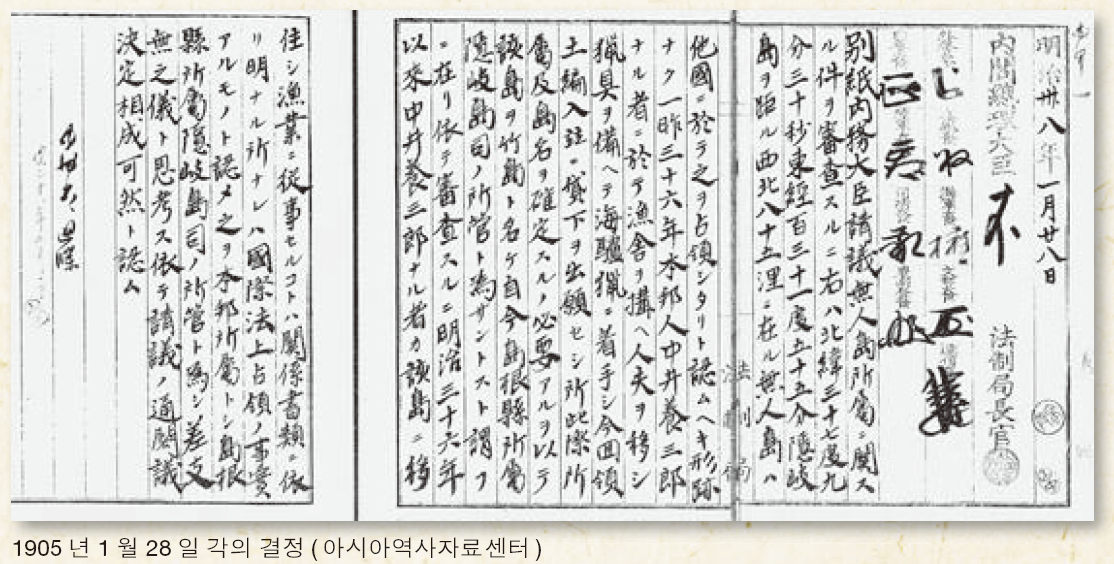 明治卅八年一月廿八日
内閣総理大臣
法制局長官
別紙内務大臣請議無人島所属ニ関ス
ル件ヲ審査スルニ右ハ北緯三十七度九
分三十秒東経百三十一度五十五分隠岐
島ヲ距ル西北八十五浬ニ在ル無人島ハ
他國ニ於テ之ヲ占領シタリト認ムヘキ形跡
ナク一昨三十六年本邦人中井養三郎
ナル者ニ於テ漁舎ヲ構ヘ人夫ヲ移シ
猟具ヲ備ヘテ海驢猟ニ着手シ今回領
土編入並ニ貸下ヲ出願セシ所此際所
属及島名ヲ確定スルノ必要アルヲ以テ
該島ヲ竹島ト名ケ自今島根縣所属
隠岐島司ノ所管ト為サントスト謂フ
ニ在リ依テ審査スルニ明治三十六年
以来中井養三郎ナル者カ該島ニ移
住シ漁業ニ従事セルコトハ関係書類ニ依
リ明ナル所ナレハ國際法上占領ノ事實
アルモノト認メ之ヲ本邦所属トシ島根
縣所属隠岐島司ノ所管ト為シ差支
無之儀ト思考ス依テ請議ノ通閣議
決定相成可然ト認ム
法制局
1905 년 1 월 28 일 각의 결정 ( 아시아역사자료센터 )